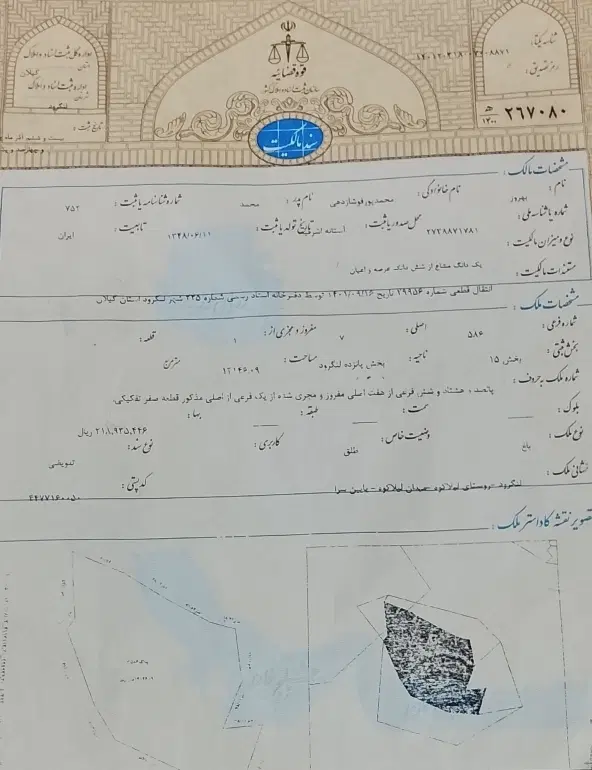 شناسه یکتا:
۱۴۰۱۲۰۳۱۸۰۰۲۰۸۸۷۱
رمز تصدیق:
۲۶۷۰۸۰
۱۴۰۰
قوه قضائیه
سازمان ثبت اسناد و املاک کشور
اداره کل ثبت اسناد و املاک
استان گیلان
اداره ثبت اسناد و املاک
لنگرود
تاریخ ثبت:
سند مالکیت
مشخصات مالک:
نام: بهروز نام خانوادگی: محمدپورفوشازدهی نام پدر: محمد شماره شناسنامه یا ثبت: ۷۵۲
شماره یا شناسه ملی: ۲۷۲۸۸۷۱۷۸۱ محل صدور یا ثبت: آستانه اشرفیه تاریخ تولد یا ثبت: ۱۳۴۸/۰۶/۱۱ تابعیت: ایران
نوع و میزان مالکیت: یک دانگ مشاع از شش دانگ عرصه و اعیان
مستندات مالکیت: انتقال قطعی شماره ۲۹۹۵۶ تاریخ ۱۴۰۱/۰۹/۱۶ توسط دفترخانه اسناد رسمی شماره ۲۲۵ شهر لنگرود استان گیلان
مشخصات ملک:
شماره فرعی: ۵۸۶ اصلی: ۷ مفروز و مجزی از: ۱ قطعه:
بخش ثبتی: بخش ۱۵ ناحیه: بخش پانزده لنگرود مساحت: ۱۲۱۴۶.۰۹ مترمربع
شماره ملک به حروف: پانصد و هشتاد و شش فرعی از هفت اصلی مفروز و مجزی شده از یک فرعی از اصلی مذکور قطعه صفر تفکیکی.
بلوک: سمت: طبقه: بها: ۲۱۸,۹۳۵,۴۴۶ ریال
نوع ملک: باغ وضعیت خاص: طلق کاربری: نوع سند: تعویضی
نشانی ملک: لنگرود -روستای لیلاکوه -میدان لیلاکوه - پایین سرا کد پستی: ۴۴۷۷۱۶۰۰۵۰
تصویر نقشه کاداستر ملک: